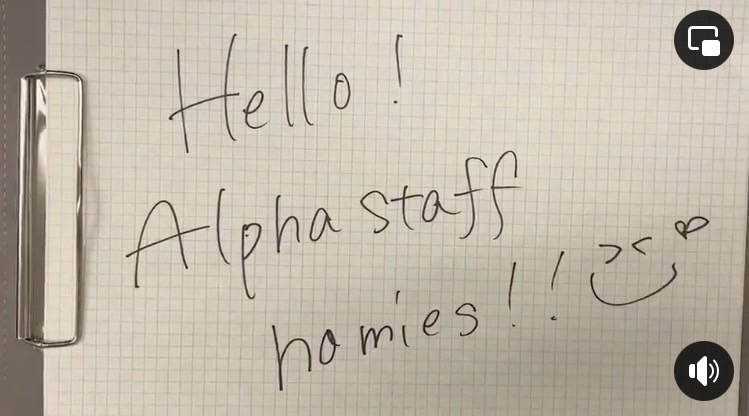 Hello!
Alpha staff
homies!!